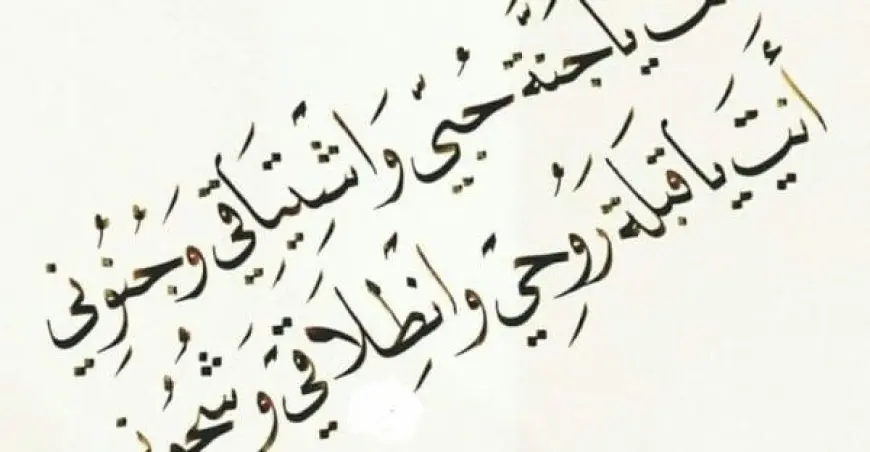 يا جنة حُبيّ وَاشتِيَاقي وَجُنُوني
أنتِ يا قبلة رَوُحيّ وانطِلَاقيّ وَشجُوني